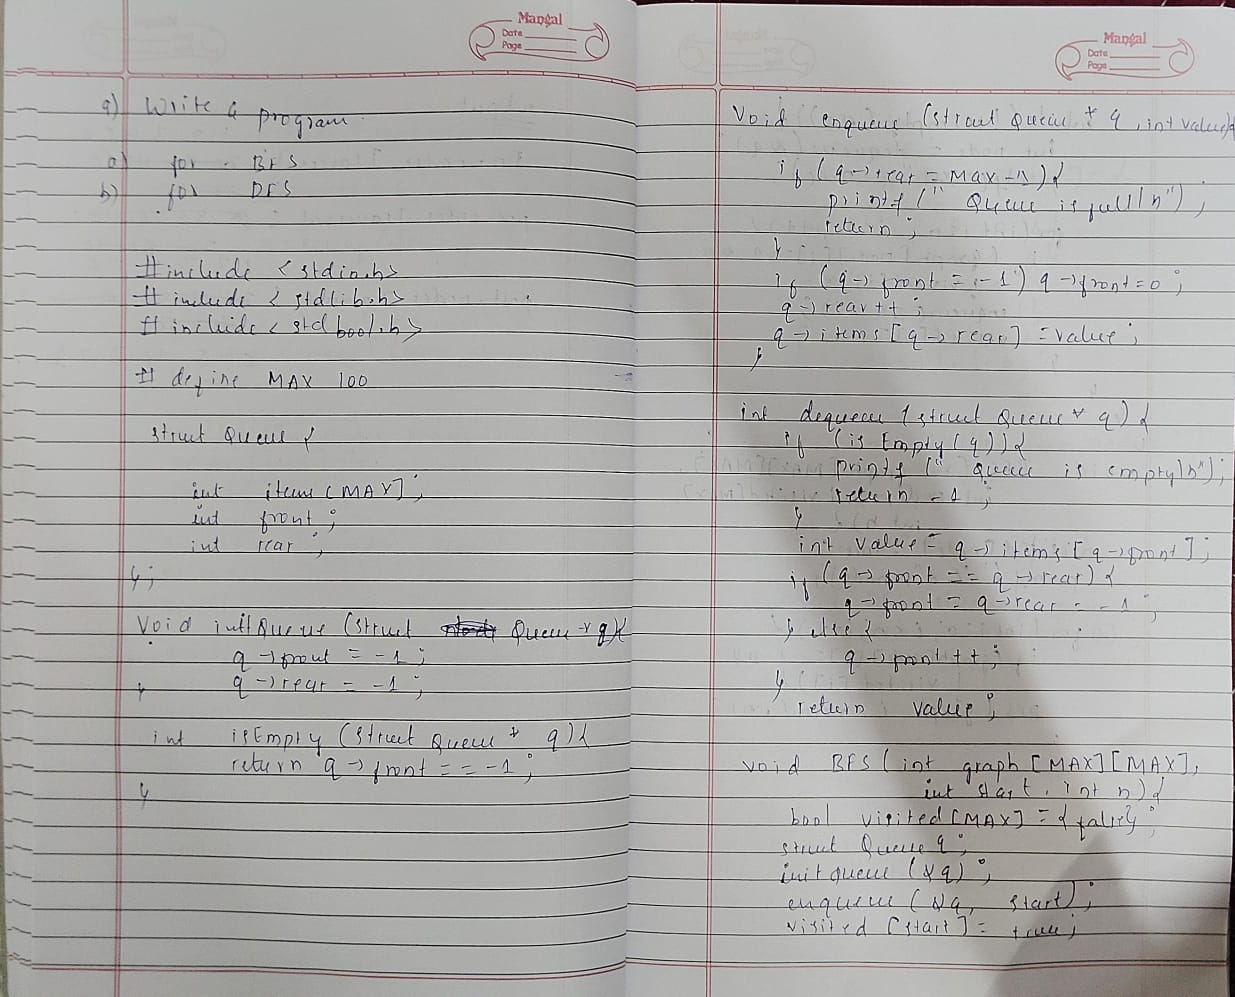 Mangal
Date
Page
9) Write a program
a) for BFS
b) for DFS
#include <stdio.h>
# include < stdlib.h>
# include < stdbool.h>
# define MAX 100
struct Queue {
int items [MAX];
int front;
int rear;
};
Void initQueue (struct Queue * q){
q->front = -1;
q->rear = -1;
}
int isEmpty (struct Queue * q) {
return q->front == -1;
}
Mangal
Date
Page
Void enqueue (struct Queue * q, int value){
if (q->rear = MAX -1) {
printf (" Queue is full\n");
return;
}
if (q->front = -1) q->front=0;
q->rear++;
q->items [q->rear] = value;
}
int dequeue (struct Queue * q) {
if (isEmpty (q)) {
printf (" Queue is empty\n");
return -1;
}
int value = q->items [q->front];
if (q->front == q->rear) {
q->front = q->rear = -1;
} else {
q->front++;
}
return value;
void BFS (int graph [MAX][MAX],
int start, int n) {
bool visited [MAX] = {false};
struct Queue q;
initqueue (&q);
enqueue (&q, start);
visited [start] = true;